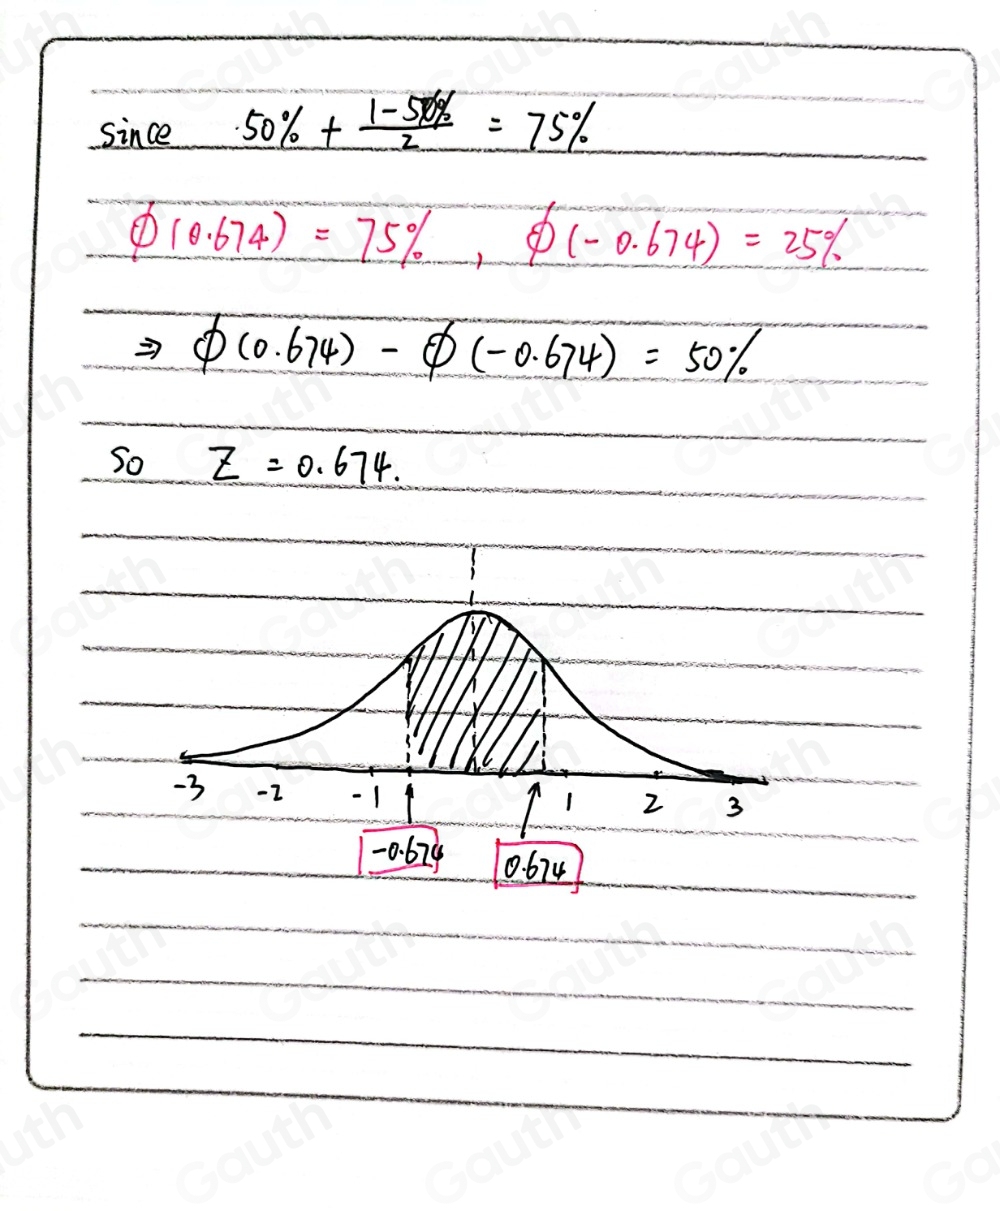 since 50% + (1-50%)/2 = 75%
ϕ(0.674) = 75%, ϕ(-0.674) = 25%
⇒ ϕ(0.674) - ϕ(-0.674) = 50%
so Z = 0.674.
-3 -2 -1 1 2 3
-0.674 0.674
Gauth